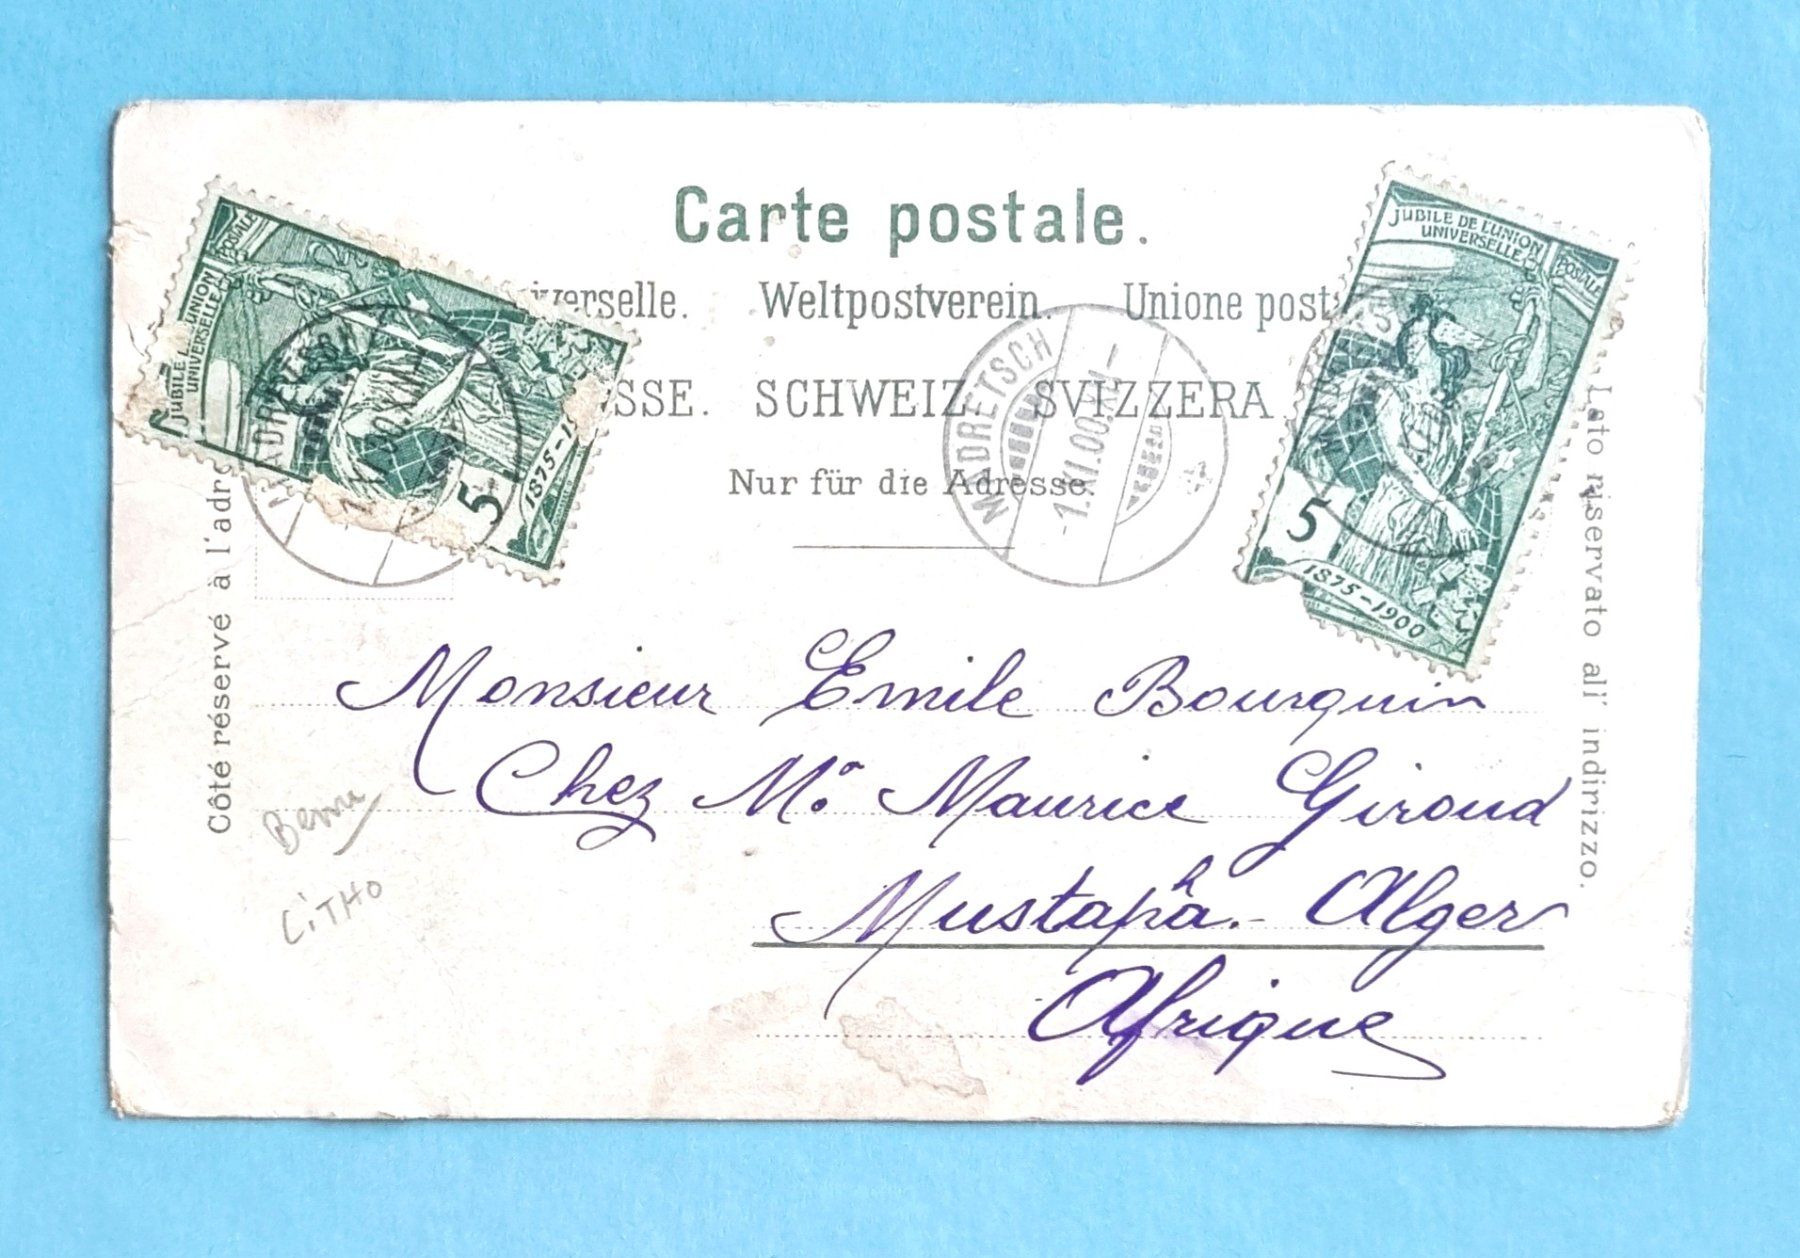 Carte postale.
verselle. Weltpostverein. Unione post
SSE. SCHWEIZ. SVIZZERA.
Nur für die Adresse.
JUBILE L'UNION POSTALE
UNIVERSELLE
5
1875-1
MADRETSCH
-1.XI.00.XI-
MADRETSCH
-1.XI.00.XI-
JUBILE DE L'UNION
UNIVERSELLE POSTALE
5
1875-1900
Côté réservé à l'adre
Lato riservato all' indirizzo.
Monsieur Emile Bourquin
Chez Mr. Maurice Giroud
Mustapha - Alger
Afrique
Berne
LiTHO